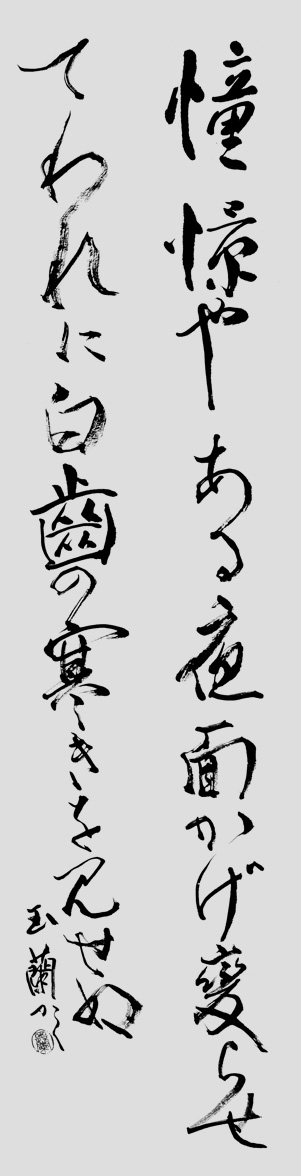 憧憬やある夜面かげ變らせ
てわれに白齒の寒きを見せぬ
玉蘭かく